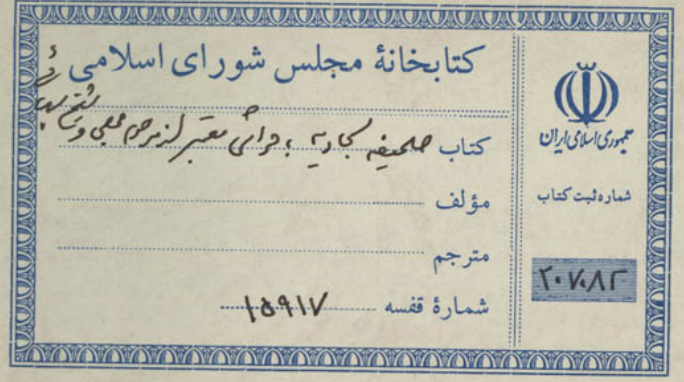 کتابخانهٔ مجلس شورای اسلامی
کتاب صحیفه سجادیه با حواشی معتبر از مرحوم مجلسی و شیخ
مؤلف
مترجم
شمارهٔ قفسه ۱۵۹۱۷
جمهوری اسلامی ایران
شماره ثبت کتاب
۲۰۷۰۸۲